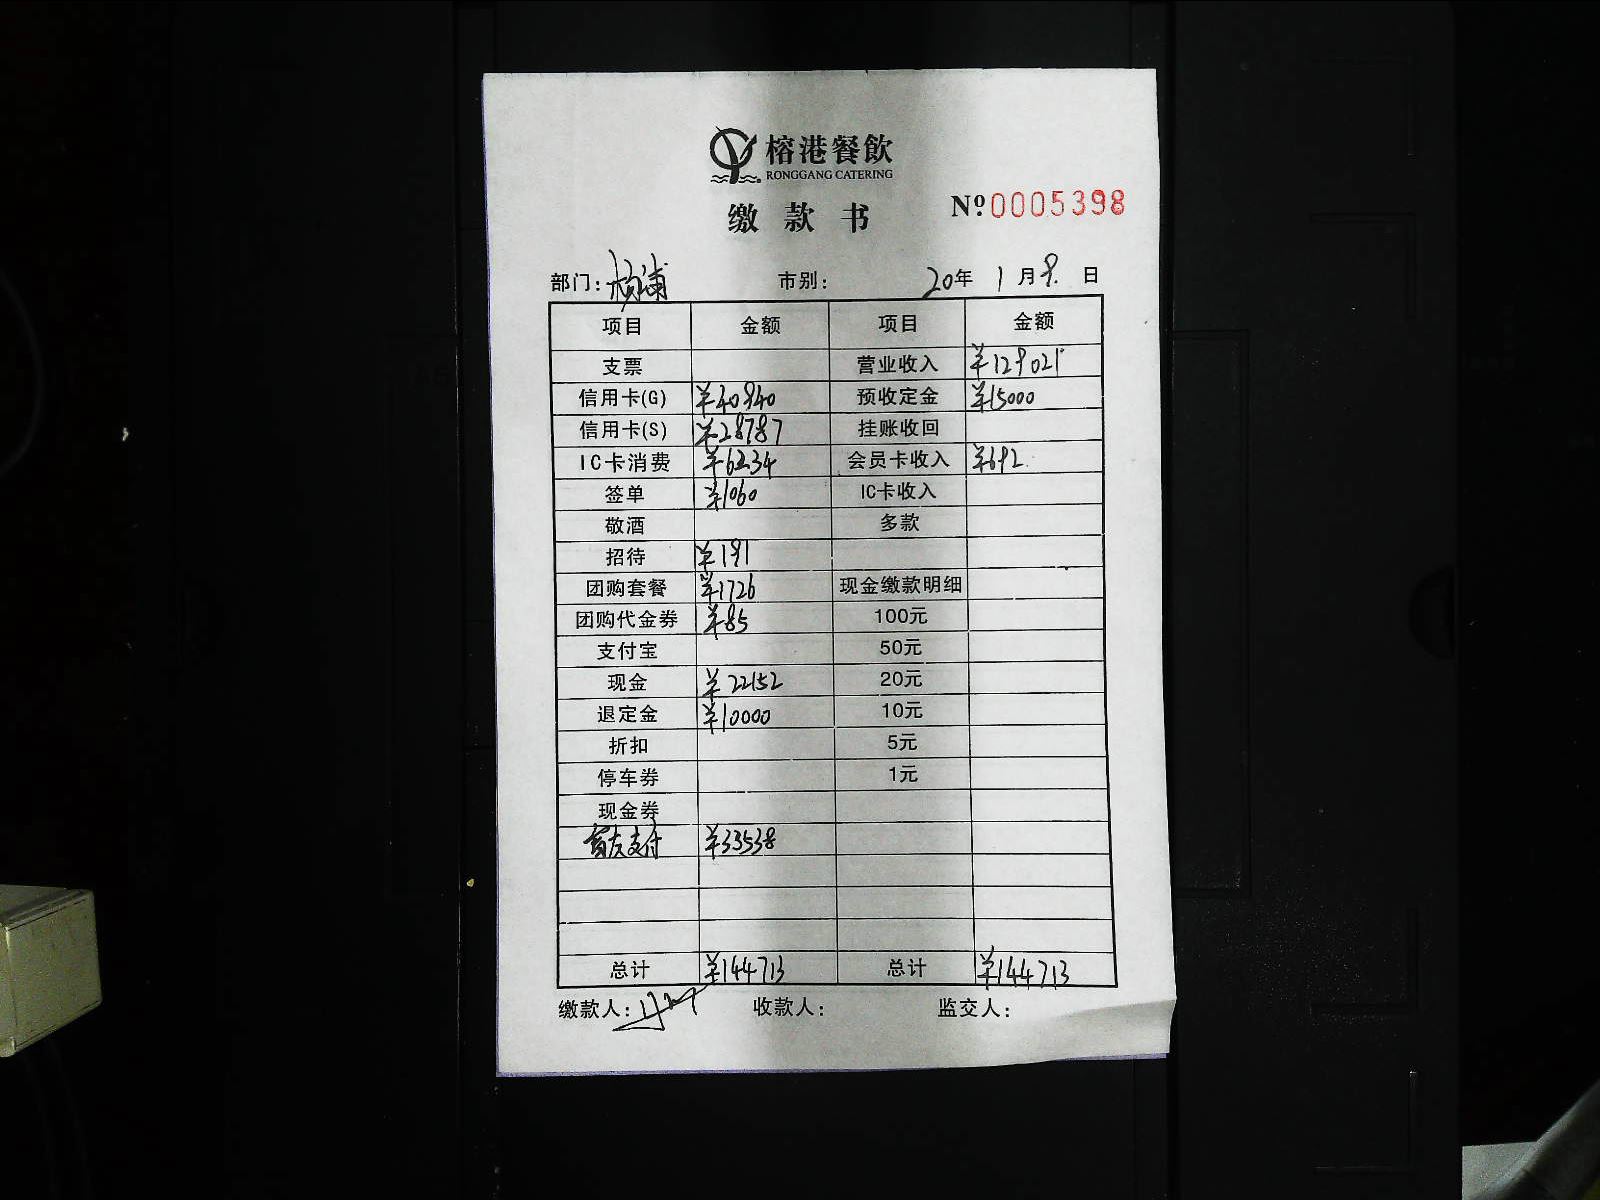 榕港餐飲
RONGGANG CATERING
缴款书 № 0005398
部门: 杨浦 市别: 20年 1月9日
项目 金额 项目 金额
支票 营业收入 ¥129021
信用卡(G) ¥40940 预收定金 ¥15000
信用卡(S) ¥28787 挂账收回
IC卡消费 ¥6234 会员卡收入 ¥692
签单 ¥1060 IC卡收入
敬酒 多款
招待 ¥191
团购套餐 ¥1726 现金缴款明细
团购代金券 ¥85 100元
支付宝 50元
现金 ¥22152 20元
退定金 ¥10000 10元
折扣 5元
停车券 1元
现金券
富友支付 ¥33538
总计 ¥144713 总计 ¥144713
缴款人: 收款人: 监交人: